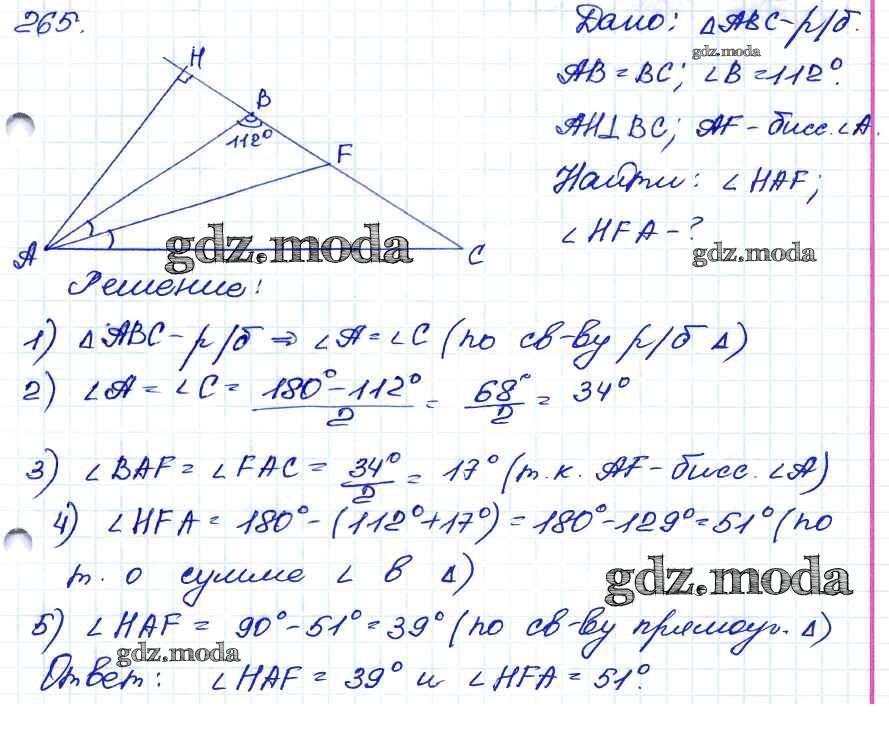 265.
Дано: △ABC-р/б.
gdz.moda
AB = BC; ∠B = 112°.
AH⊥BC; AF - бисс. ∠A.
Найти: ∠HAF;
∠HFA - ?
gdz.moda
H
B
112°
F
A
C
gdz.moda
Решение:
1) △ABC - р/б ⇒ ∠A = ∠C (по св-ву р/б △)
2) ∠A = ∠C = (180° - 112°)/2 = 68°/2 = 34°
3) ∠BAF = ∠FAC = 34°/2 = 17° (т.к. AF - бисс. ∠A)
4) ∠HFA = 180° - (112° + 17°) = 180° - 129° = 51° (по
т. о сумме ∠ в △)
gdz.moda
5) ∠HAF = 90° - 51° = 39° (по св-ву прямоуг. △)
gdz.moda
Ответ: ∠HAF = 39° и ∠HFA = 51°.